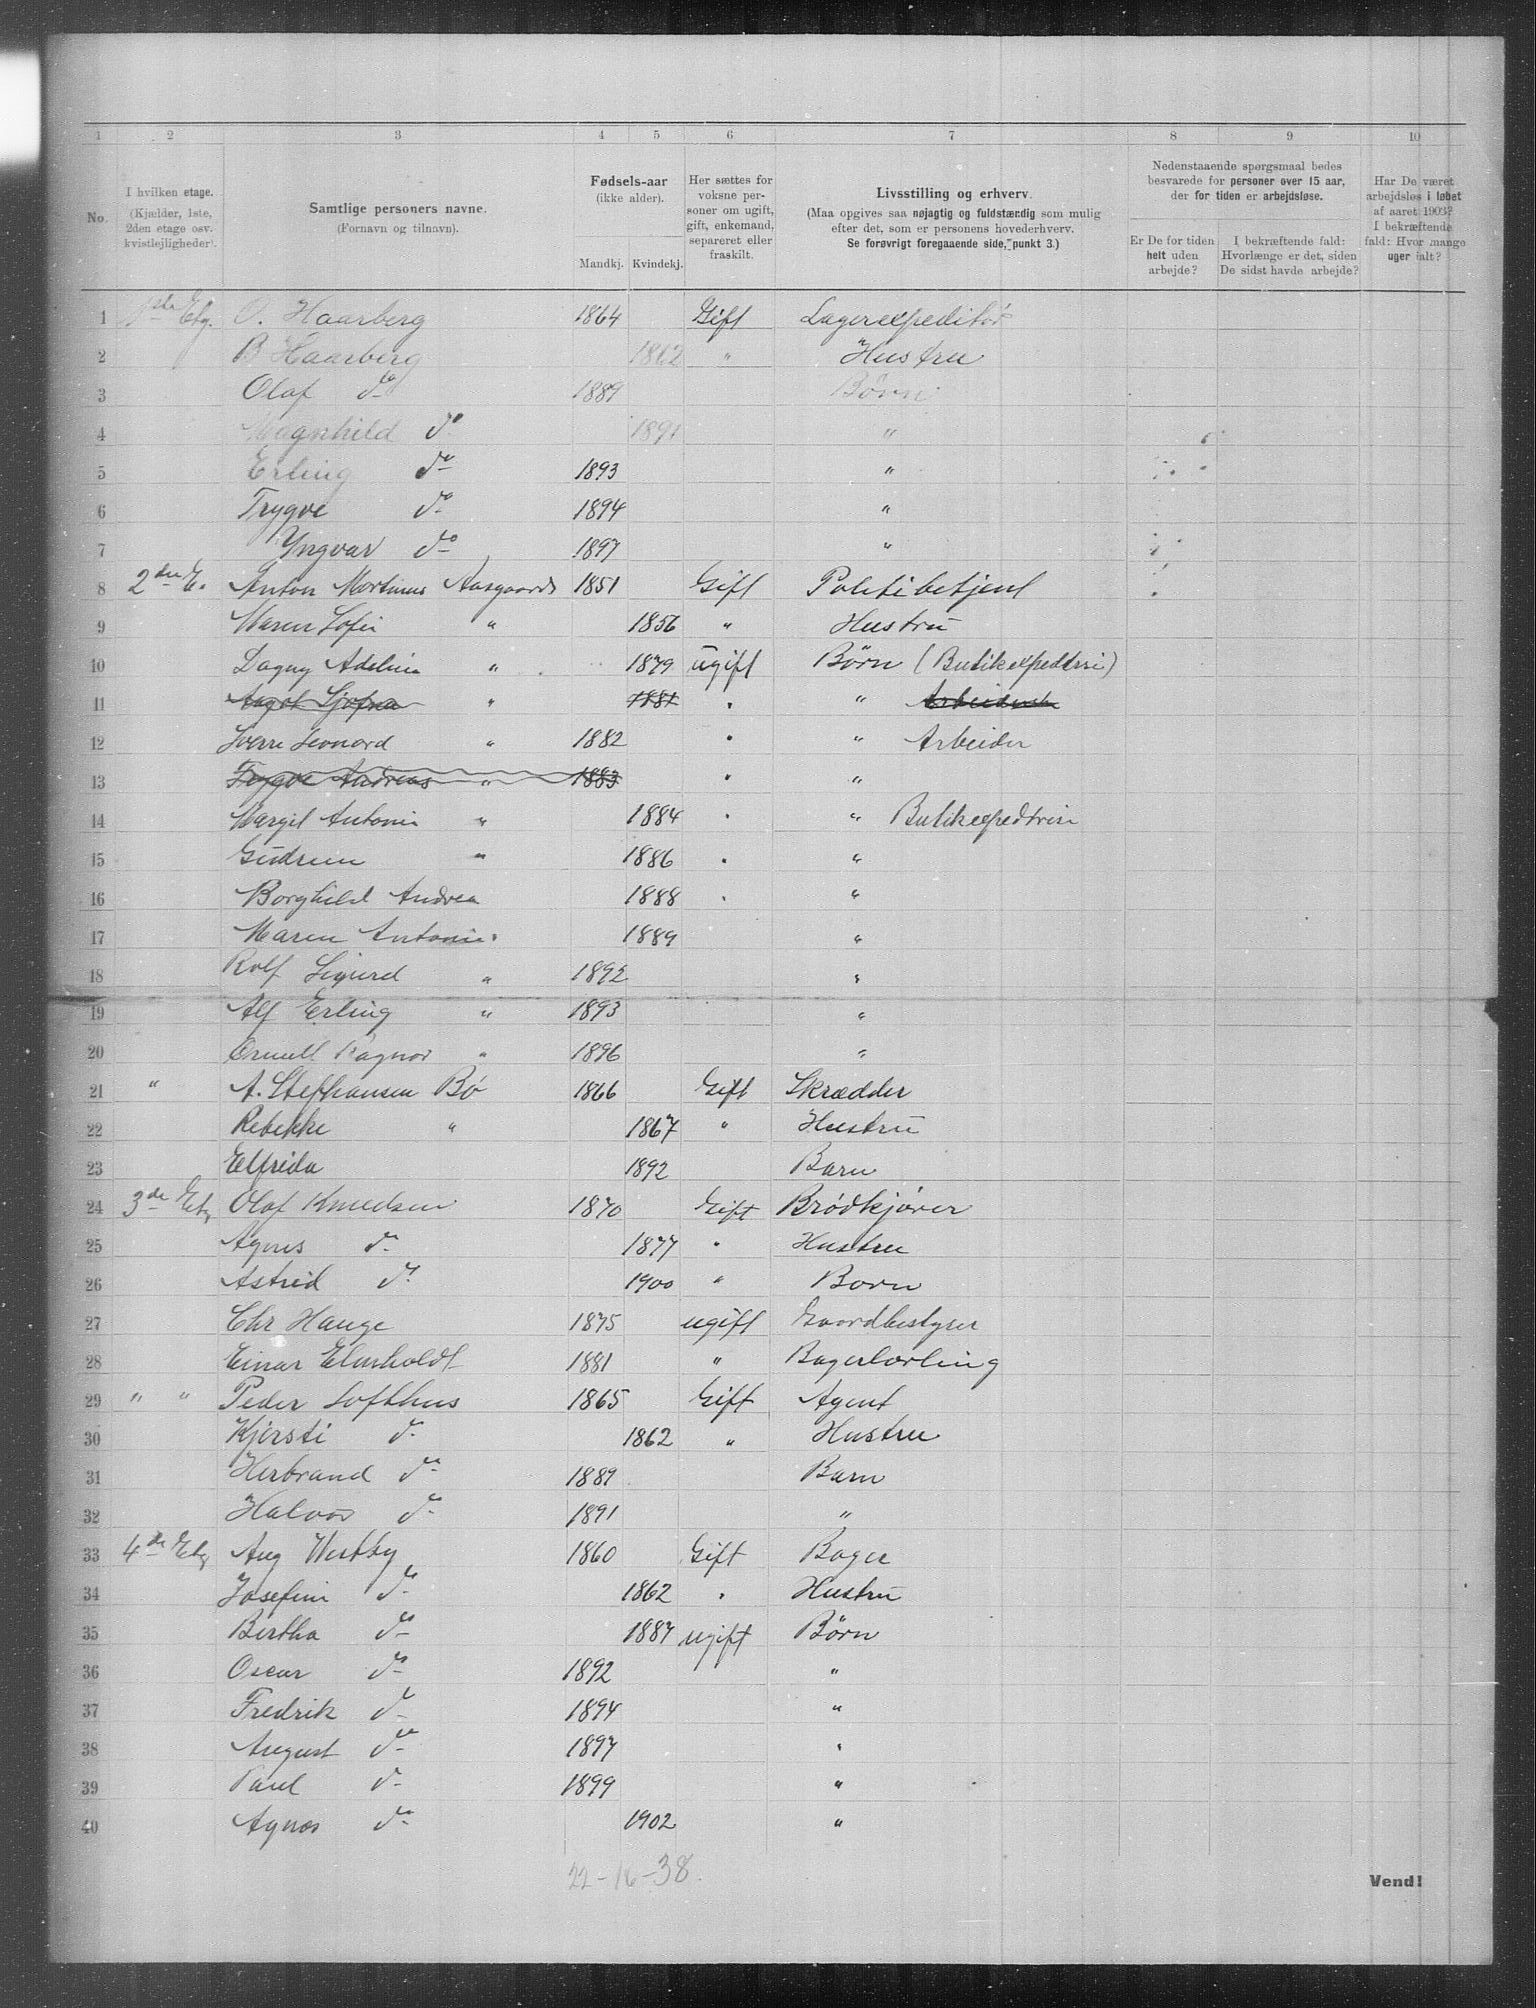 1 2 3 4 5 6 7 8 9 10
No.
I hvilken etage.
(Kjælder, 1ste,
2den etage osv.
kvistlejligheder).
Samtlige personers navne.
(Fornavn og tilnavn).
Fødsels-aar
(ikke alder).
Mandkj. Kvindekj.
Her sættes for
voksne per-
soner om ugift,
gift, enkemand,
separeret eller
fraskilt.
Livsstilling og erhverv.
(Maa opgives saa nøjagtig og fuldstærdig som mulig
efter det, som er personens hovederhverv.
Se forøvrigt foregaaende side, punkt 3.)
Nedenstaaende spørgsmaal bedes
besvarede for personer over 15 aar,
der for tiden er arbejdsløse.
Er De for tiden
helt uden
arbejde?
I bekræftende fald:
Hvorlænge er det, siden
De sidst havde arbejde?
Har De været
arbejdsløs i løbet
af aaret 1903?
I bekræftende
fald: Hvor mange
uger ialt?
1 1ste Etg. O. Haarberg 1864 Gift Lagerexpeditør
2 B Haarberg 1862 " Hustru
3 Olaf do 1889 Børn
4 Magnhild do 1891 "
5 Erling do 1893 "
6 Trygve do 1894 "
7 Yngvar do 1897 "
8 2den E. Anton Martinus Aasgaard 1851 Gift Politibetjent
9 Maren Sofie " 1856 " Hustru
10 Dagny Adeline " 1879 ugift Børn (Butikexpedtrise)
11 Aagot Sjofna " 1881 " " Arbeiderske
12 Sverre Leonard " 1882 " " Arbeider
13 Trygve Andreas " 1883 " "
14 Margit Antonie " 1884 " " Butikexpedtrise
15 Gudrun " 1886 " "
16 Borghild Andrea 1888 " "
17 Maren Antonie " 1889 "
18 Rolf Sigurd " 1892 "
19 Alf Erling " 1893 "
20 Ragnar " 1896 "
21 " A. Steffhansen Bø 1866 Gift Skrædder
22 Rebekke " 1867 " Hustru
23 Elfrida 1892 Barn
24 3de Etg Olaf Knudsen 1870 Gift Brødkjører
25 Agnes do 1877 " Hustru
26 Astrid do 1900 " Barn
27 Chr Hauge 1875 ugift Gaardbestyrer
28 Einar Elmholdt 1881 " Bagerlærling
29 " " Peder Lofthus 1865 Gift Agent
30 Kjersti do 1862 " Hustru
31 Herbrand do 1889 Barn
32 Halvor do 1891 "
33 4de Etg Aug Westby 1860 Gift Bager
34 Josefine do 1862 " Hustru
35 Bertha do 1887 ugift Børn
36 Oscar do 1892 "
37 Fredrik do 1894 "
38 August do 1897 "
39 Paul do 1899 "
40 Agnes do 1902 "
22-16-38.
Vend!